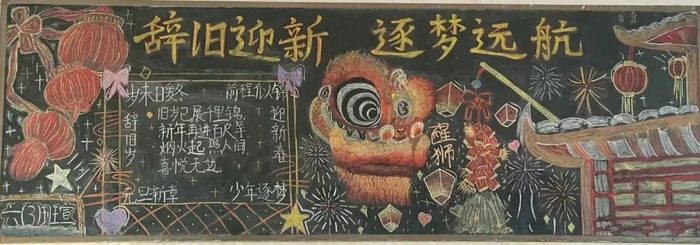 辞旧迎新 逐梦远航
岁末暖冬 前程似锦
辞旧岁
旧岁已展千里锦
新年再进百尺竿
烟火起 照人间
喜悦无边
迎新春
元旦新章 少年逐梦
醒狮
六(3)班宣